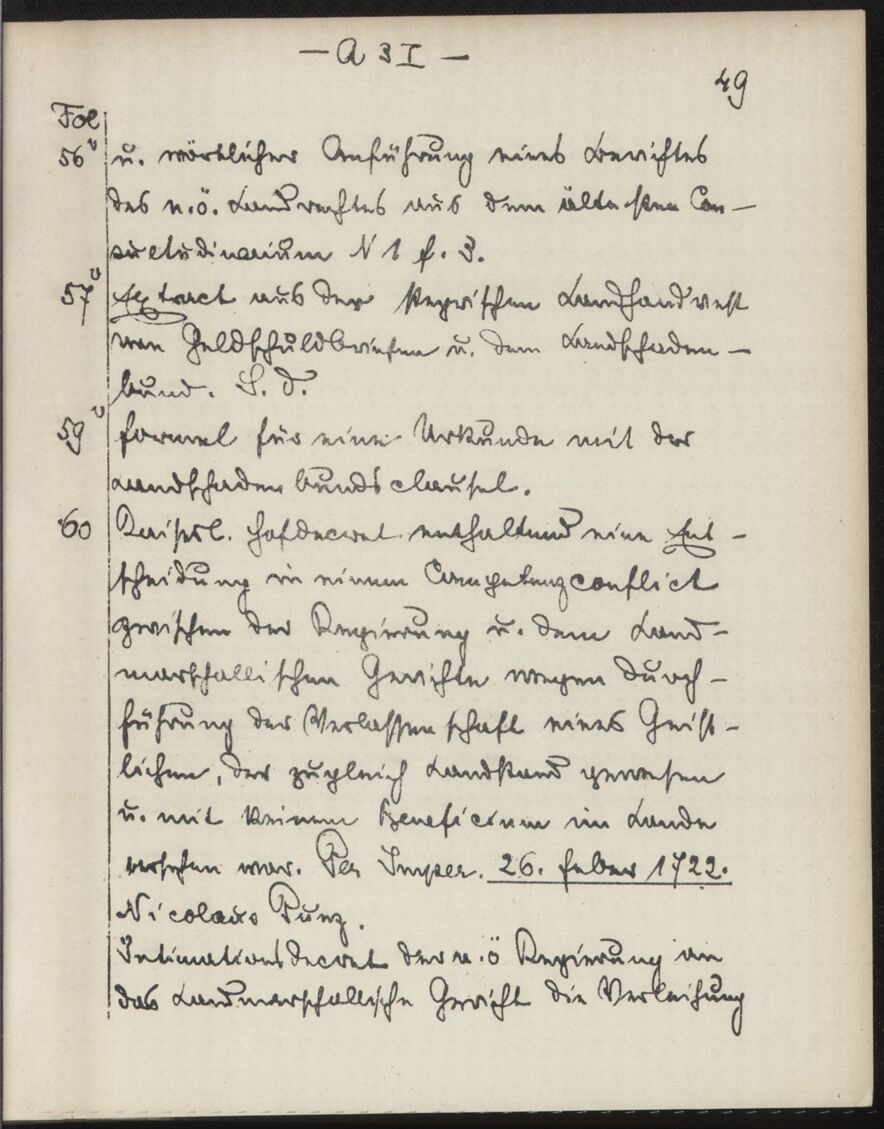 — A 3 I —
49
Fol
56v u. wörtlicher Anführung eines Berichtes
des n.ö. Landrechtes aus dem ältesten Con-
suetudinarium N 1 f. 3.
57v Extract aus der steyrischen Landhandvest
von Geldschuldbriefen u. dem Landschaden-
bund. S. d.
59v Formel für eine Urkunde mit der
Landschadenbundsclausel.
60 Kaiserl. Hofdecret enthaltend eine Ent-
scheidung in einem Competenzconflict
zwischen der Regierung u. dem Land-
marschallischen Gerichte wegen Durch-
führung der Verlassenschaft eines Geist-
lichen, der zugleich Landstand gewesen
u. mit keinem Beneficium im Lande
versehen war. Per Imper. 26. Feber 1722.
Nicolaus Punz.
Intimationsdecret der n.ö Regierung an
das Landmarschallische Gericht die Verleihung